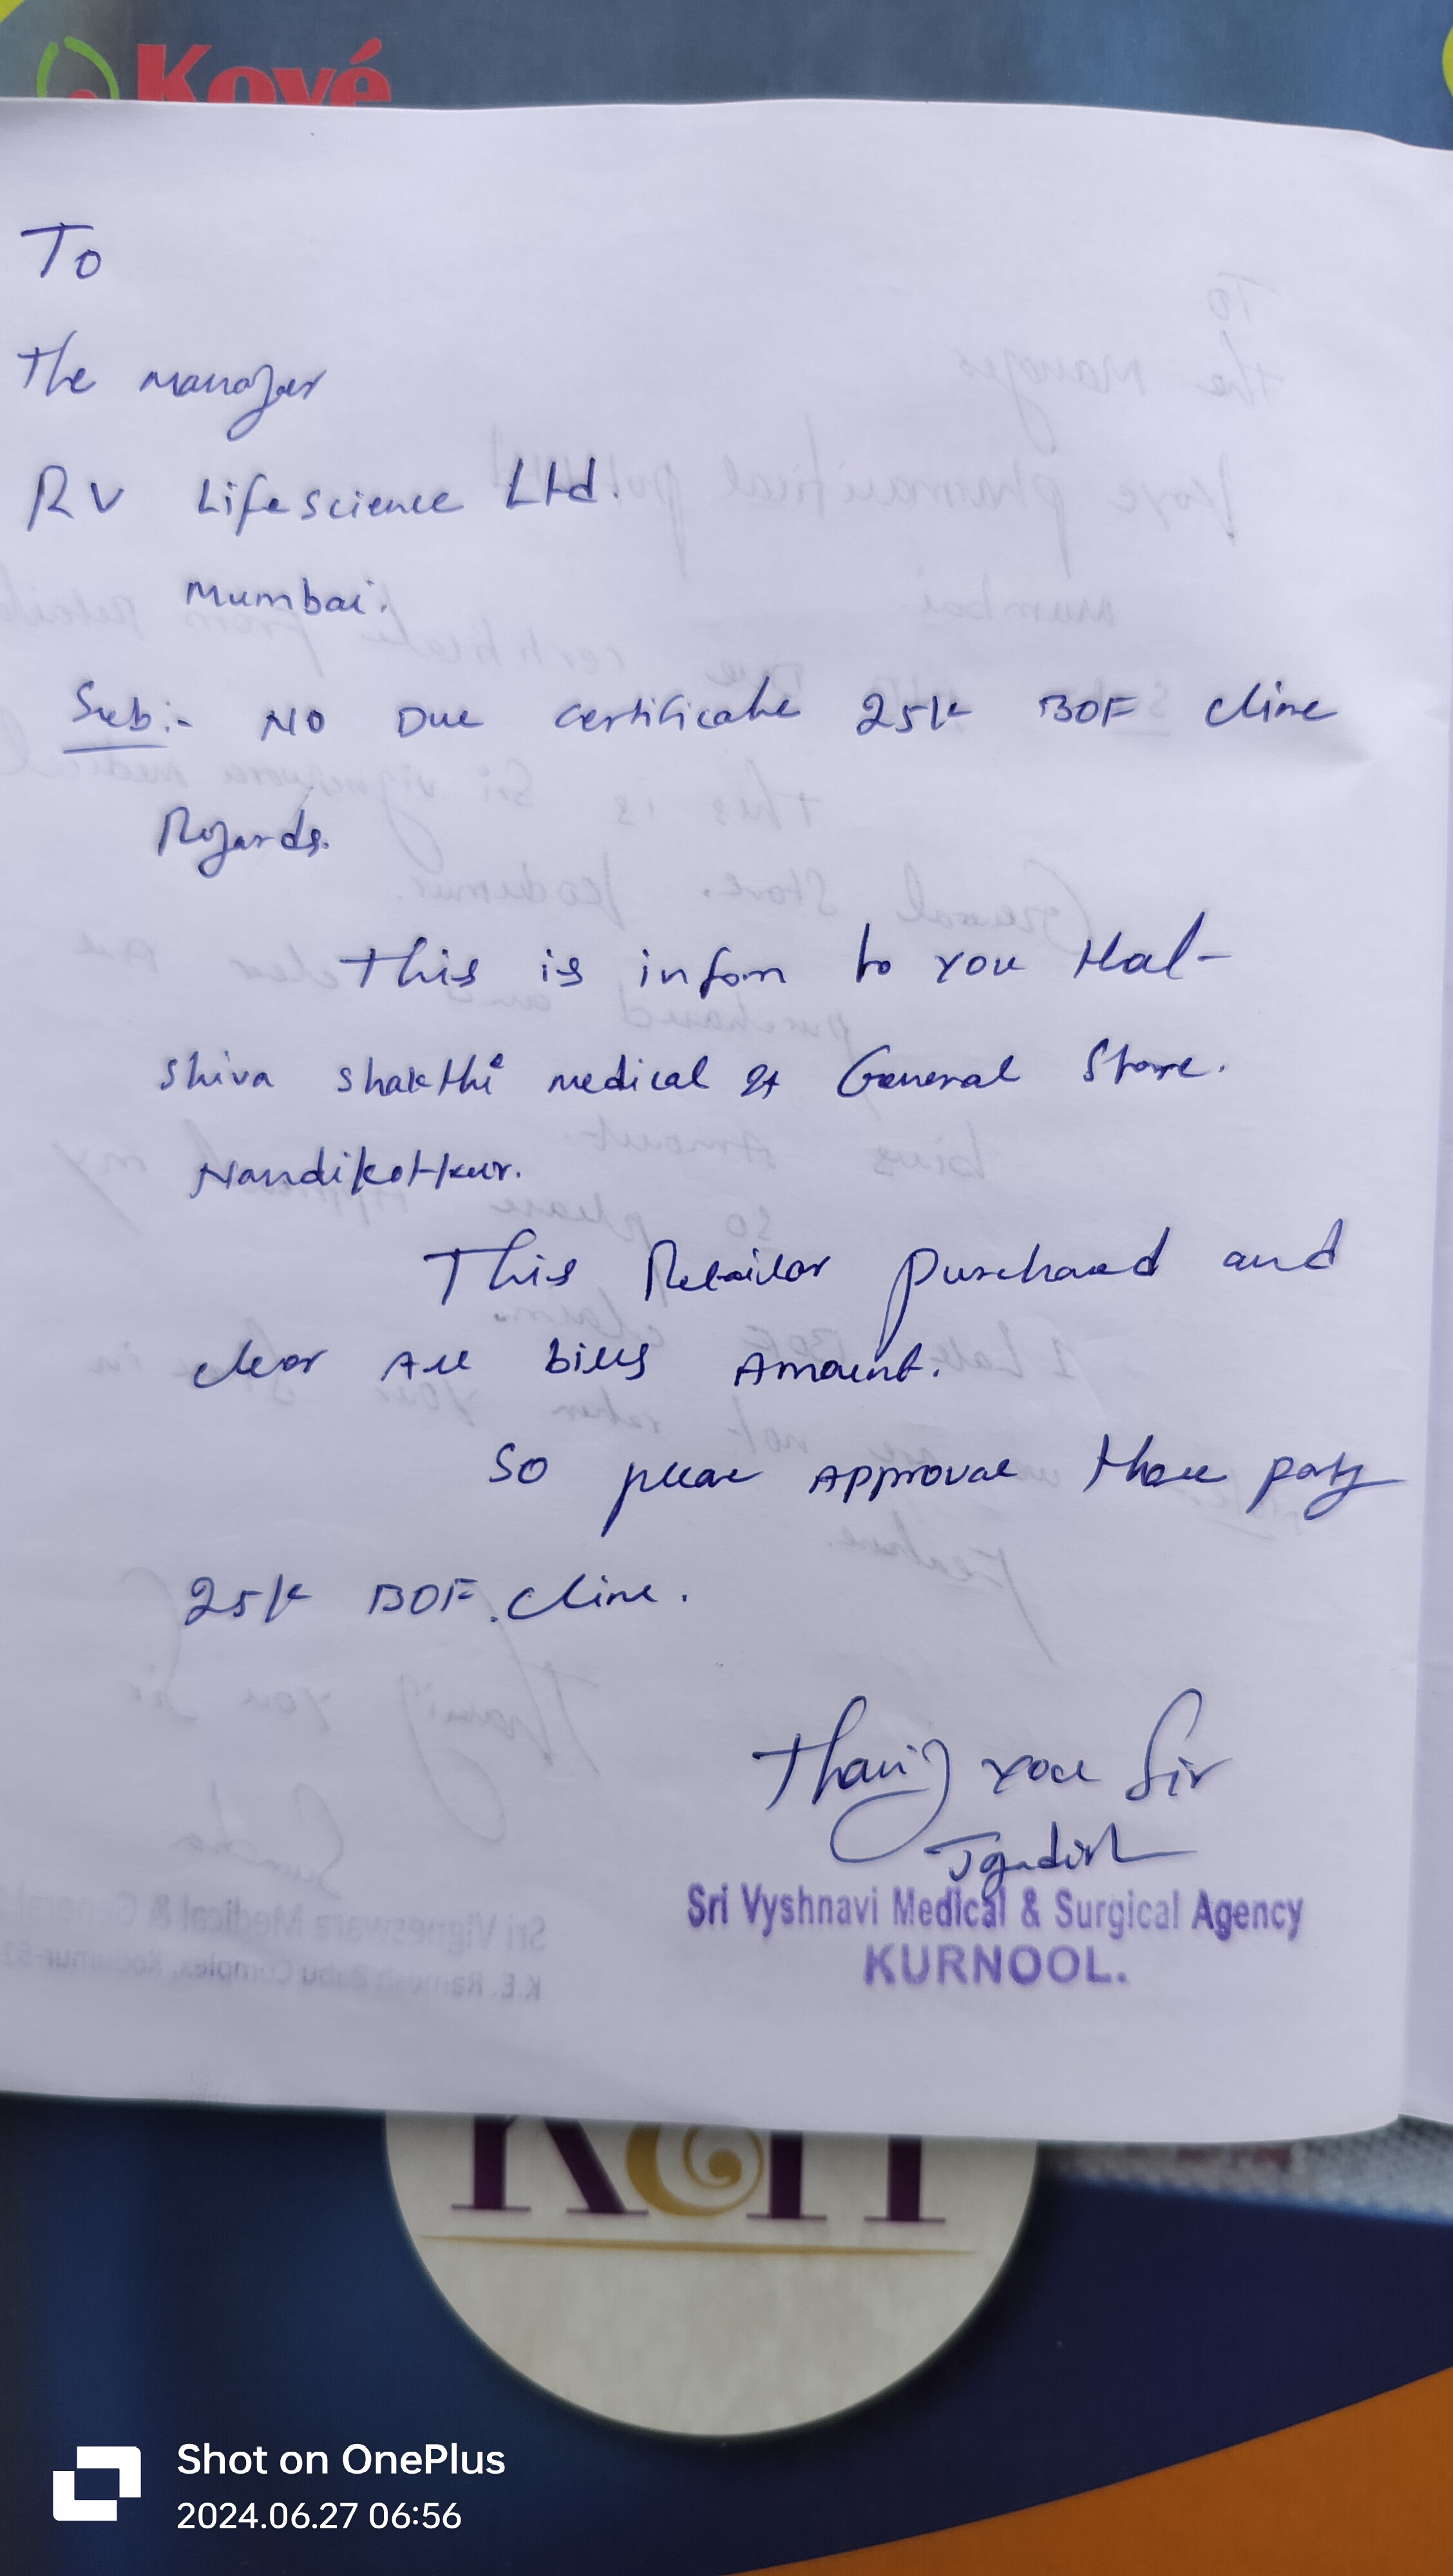 Kové
To
The manager
RV Lifescience Ltd.
Mumbai.
Sub:- NO Due certificate 25K BOF cline
Regards.
This is infom to you that-
Shiva Shakthi medical & General Store.
Nandikotkur.
This Retailor purchased and
clear All bills Amount.
So please Approval these party
25K BOF. cline.
Thanig you Sir
Jgadish
Sri Vyshnavi Medical & Surgical Agency
KURNOOL.
Shot on OnePlus
2024.06.27 06:56